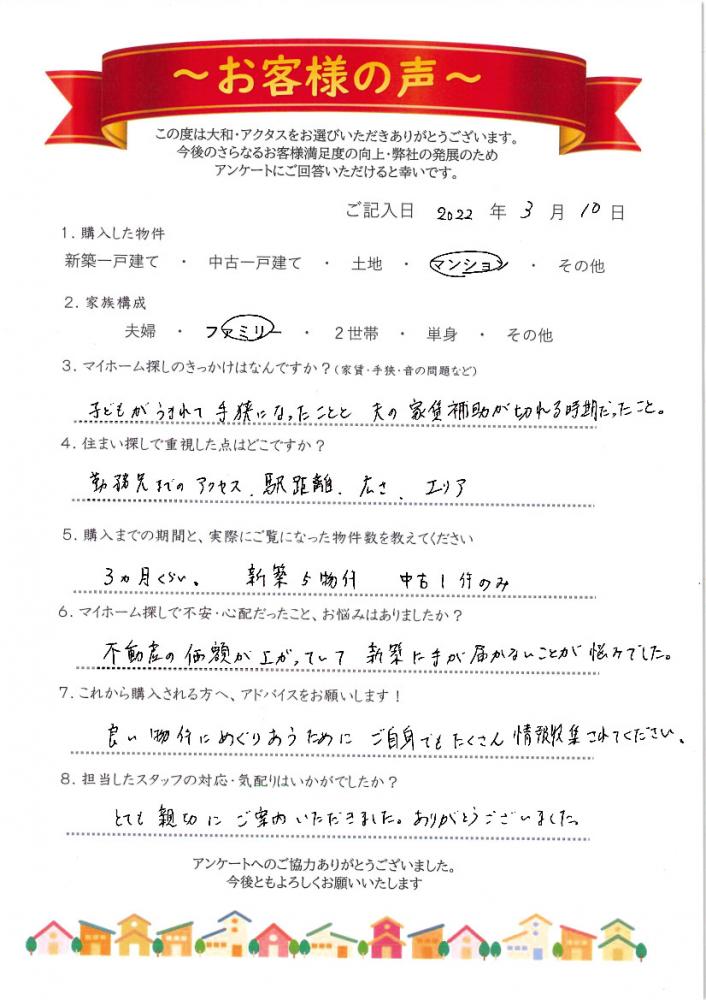 ～お客様の声～
この度は大和・アクタスをお選びいただきありがとうございます。
今後のさらなるお客様満足度の向上・弊社の発展のため
アンケートにご回答いただけると幸いです。
ご記入日 2022 年 3 月 10 日
1. 購入した物件
新築一戸建て ・ 中古一戸建て ・ 土地 ・ マンション ・ その他
2. 家族構成
夫婦 ・ ファミリー ・ 2世帯 ・ 単身 ・ その他
3. マイホーム探しのきっかけはなんですか？(家賃・手狭・音の問題など)
子どもがうまれて手狭になったことと 夫の家賃補助が切れる時期だったこと。
4. 住まい探しで重視した点はどこですか？
勤務先までのアクセス、駅距離、広さ、エリア
5. 購入までの期間と、実際にご覧になった物件数を教えてください
3ヵ月くらい。 新築5物件 中古1件のみ
6. マイホーム探しで不安・心配だったこと、お悩みはありましたか？
不動産の価額が上がっていて 新築に手が届かないことが悩みでした。
7. これから購入される方へ、アドバイスをお願いします！
良い物件にめぐりあうために ご自身でもたくさん情報収集されてください。
8. 担当したスタッフの対応・気配りはいかがでしたか？
とても親切に ご案内いただきました。ありがとうございました。
アンケートへのご協力ありがとうございました。
今後ともよろしくお願いいたします